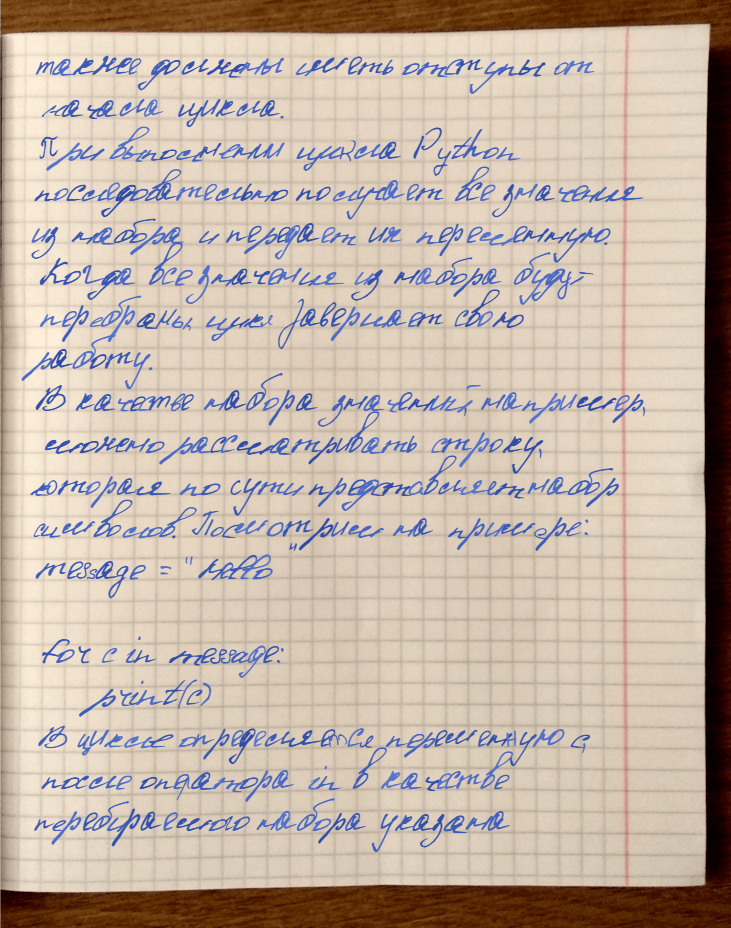 также должны иметь отступы от
начала цикла.
При выполнении цикла Python
последовательно получает все значения
из набора и передает их переменную.
Когда все значения из набора будут
перебраны, цикл завершает свою
работу.
В качестве набора значений, например,
можно рассматривать строку,
которая по сути представляет набор
символов. Посмотрим на примере:
message = "Hello"
for c in message:
print(c)
В цикле определяется переменную c,
после оператора in в качестве
перебираемого набора указана